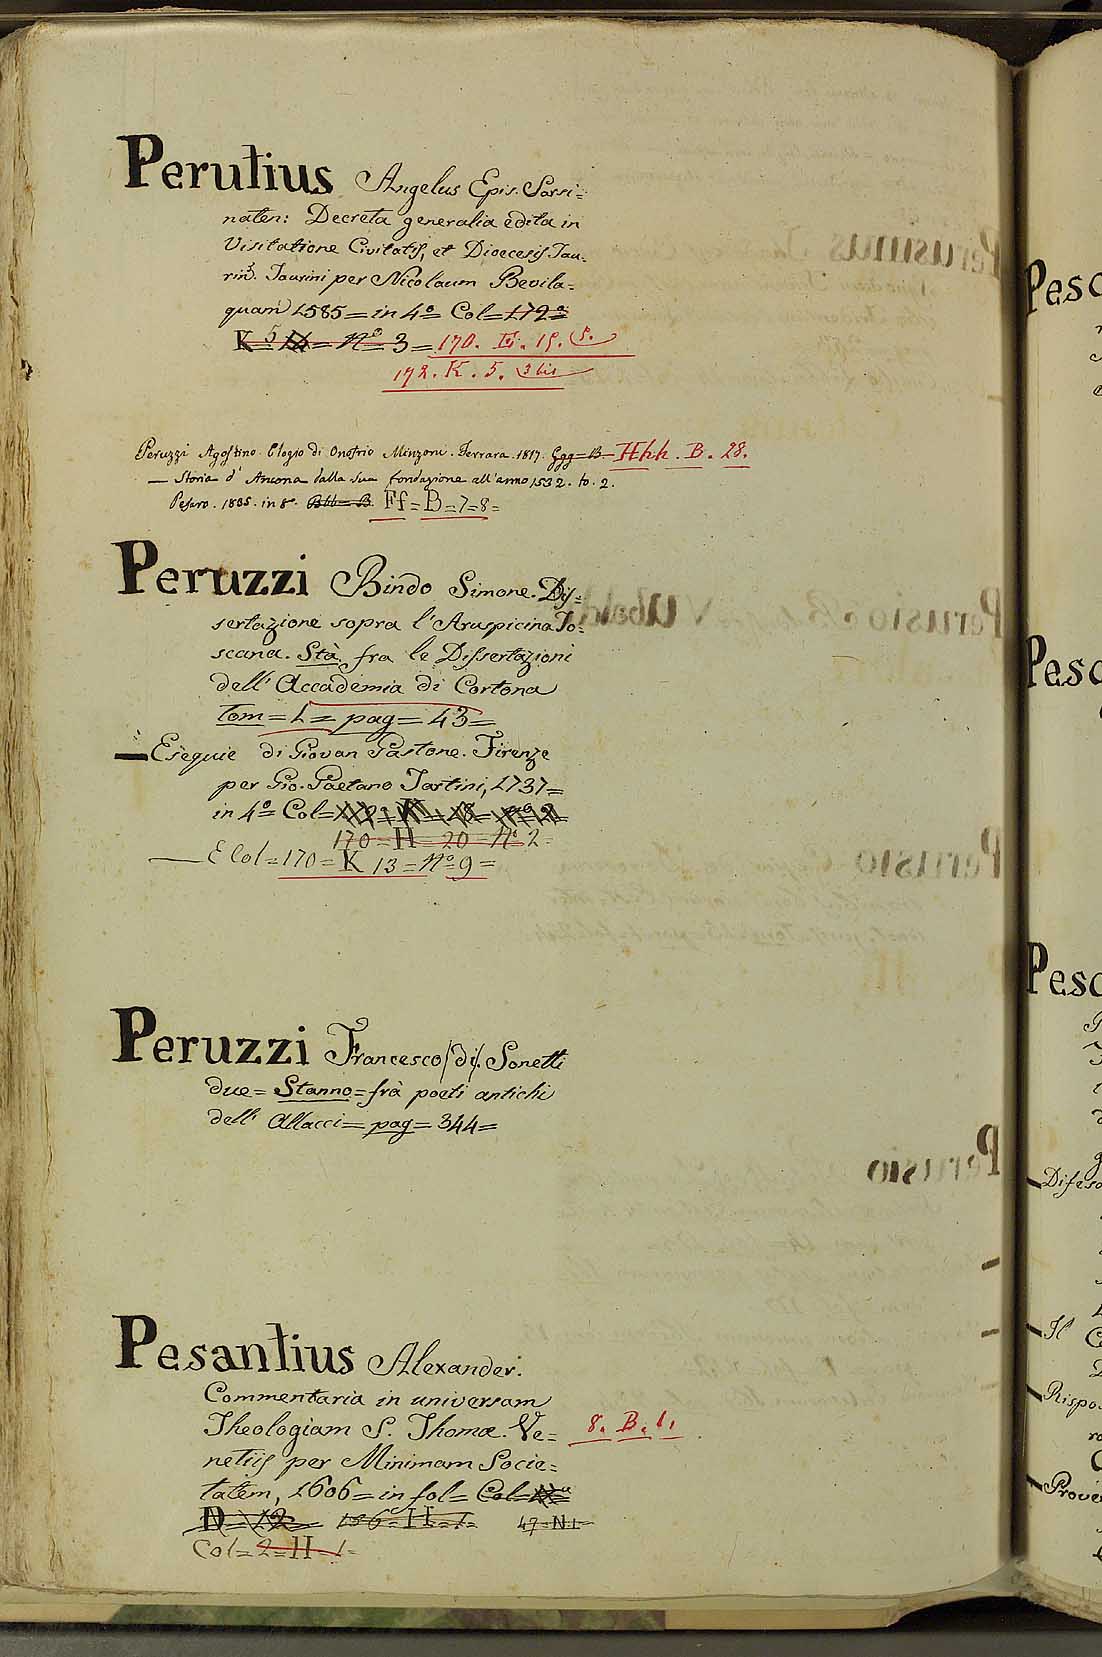 Perutius Angelus Epis. Sarsi=
naten: Decreta generalia edita in
Visitatione Civitatis, et Dioecesis Tau-
rin. Taurini per Nicolaum Bevila=
quam 1585= in 4º Col=172=
K=5 = Nº= 3= 170. E. 15. 5.
172. K. 5. 3 bis
Peruzzi Agostino. Elogio di Onofrio Minzoni. Ferrara. 1817. Ggg=B- Hhh. B. 28.
— Storia d' Ancona dalla sua fondazione all'anno 1532. to. 2.
Pesaro. 1835. in 8º. Bbb=B. Ff=B=7=8=
Peruzzi Bindo Simone. Dis=
sertazione sopra l'Aruspicina To=
scana. Stà fra le Dissertazioni
dell' Accademia di Cortona
tom=1= pag= 43=
— Esequie di Giovan Gastone. Firenze
per Gio. Gaetano Tartini, 1737=
in 4º Col=
170= H 20 Nº 2=
— E Col=170= K 13= Nº=9=
Peruzzi Francesco (di). Sonetti
due= Stanno= frà poeti antichi
dell' Allacci= pag= 344=
Pesantius Alexander.
Commentaria in universam
Theologiam S. Thomæ. Ve= 8. B. 1.
netiis per Minimam Socie=
tatem, 1606= in fol= Col=
D= 12= 136= H=1= 47=N.1=
Col= 2= H=1=
Pesc
Pesc
Pesc
— Difesa
— Il
— Rispos
— Prove